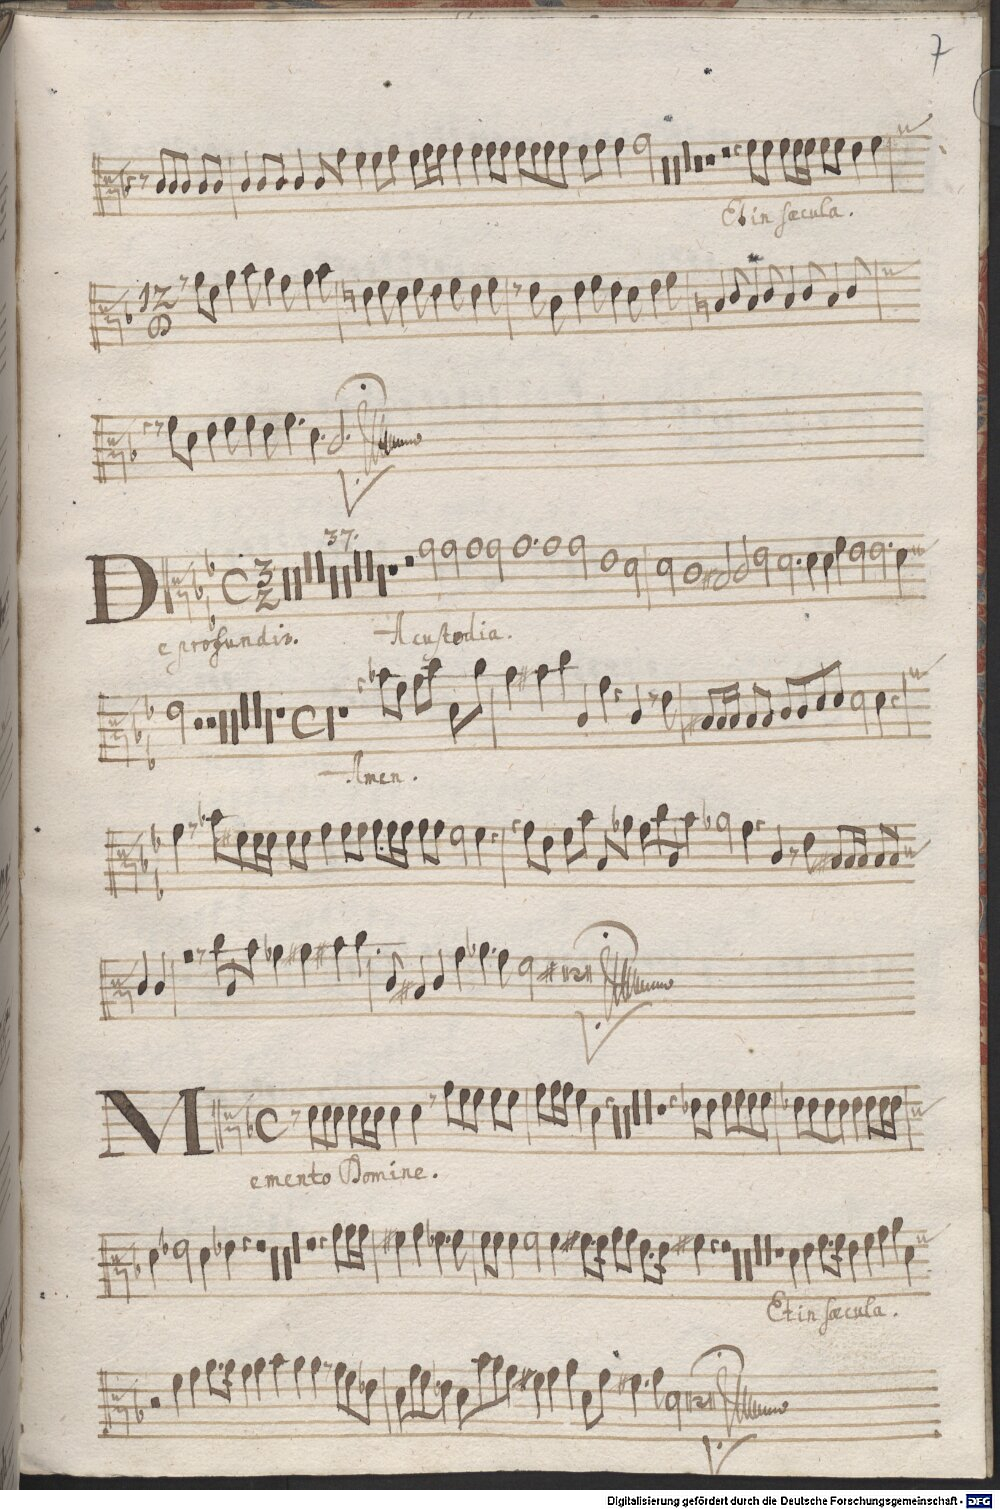 7
Et in sæcula.
12
8
37.
3
2
De profundis. A custodia.
Amen.
Memento Domine.
Et in sæcula.
Digitalisierung gefördert durch die Deutsche Forschungsgemeinschaft - DFG